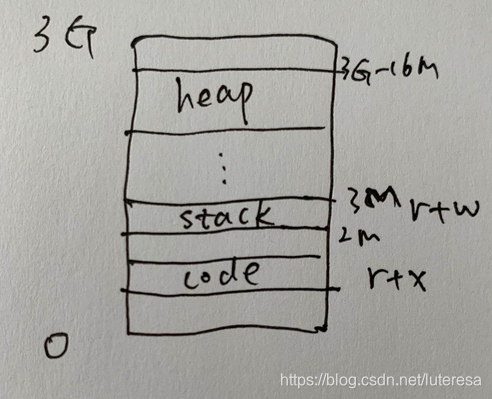 3G
3G-16M
heap
⋮
3M
r+w
stack
2M
code
r+x
0
https://blog.csdn.net/luteresa